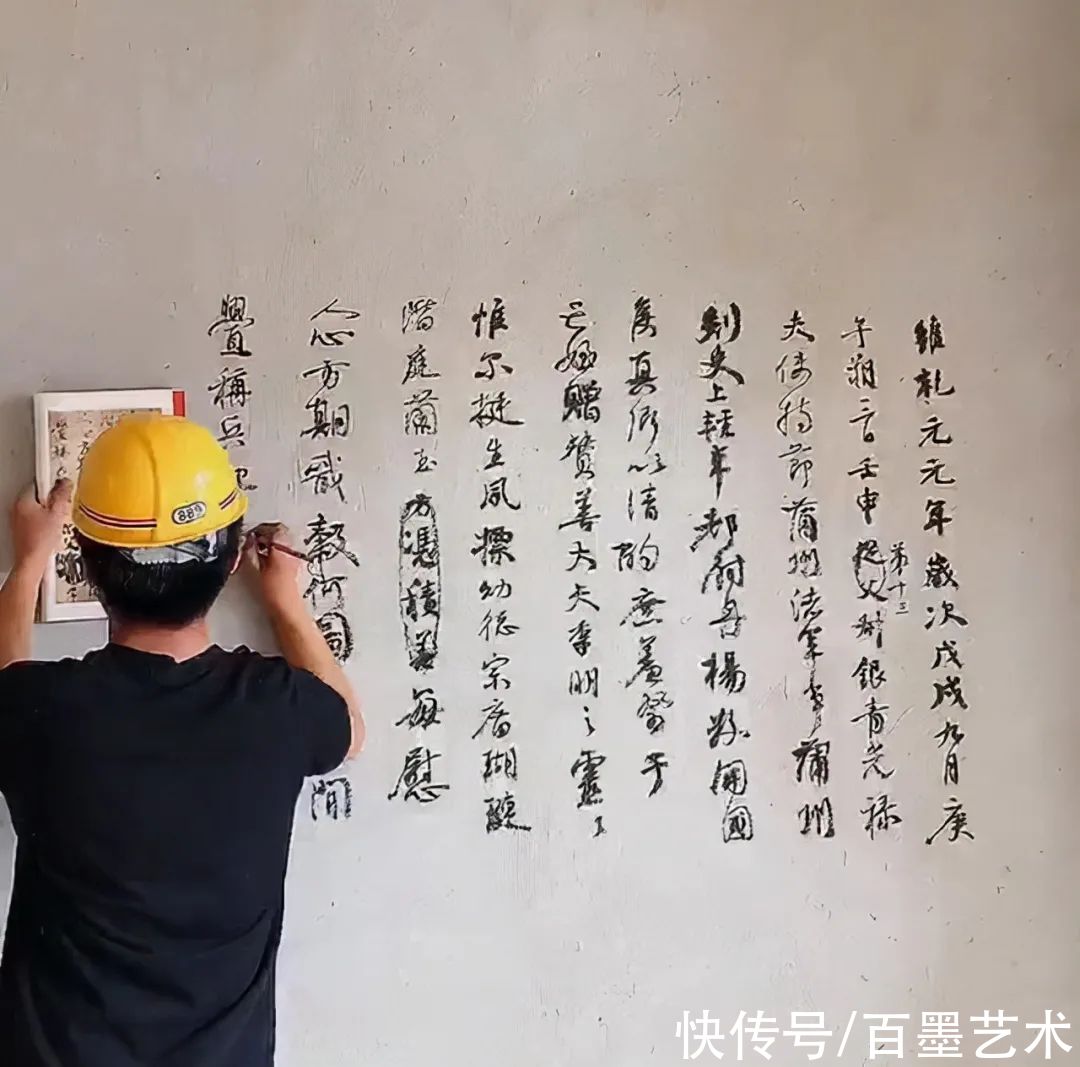 維乹元元年歲次戊戌九月庚
午朔三日壬申從父第十三叔銀青光祿
夫使持節蒲州諸軍事蒲州
刺史上轻車都尉丹楊縣開國
侯真卿以清酌庶羞祭于
亡姪贈贊善大夫季明之靈
惟爾挺生夙標幼德宗廟瑚璉
階庭蘭玉方憑積善每慰
人心方期戩穀何圖 間
釁稱兵犯
889
快传号/百墨艺术